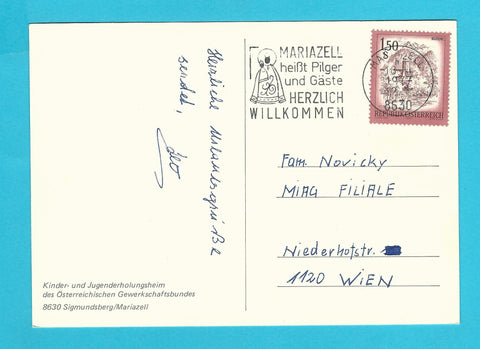 Herzliche Urlaubsgrüße
sendet,
Leo
Kinder- und Jugenderholungsheim
des Österreichischen Gewerkschaftsbundes
8630 Sigmundsberg/Mariazell
MARIAZELL
heißt Pilger
und Gäste
HERZLICH
WILLKOMMEN
8630
1.50
REPUBLIK ÖSTERREICH
Fam. Novicky
MIAG FILIALE
Niederhofstr.
1120 WIEN